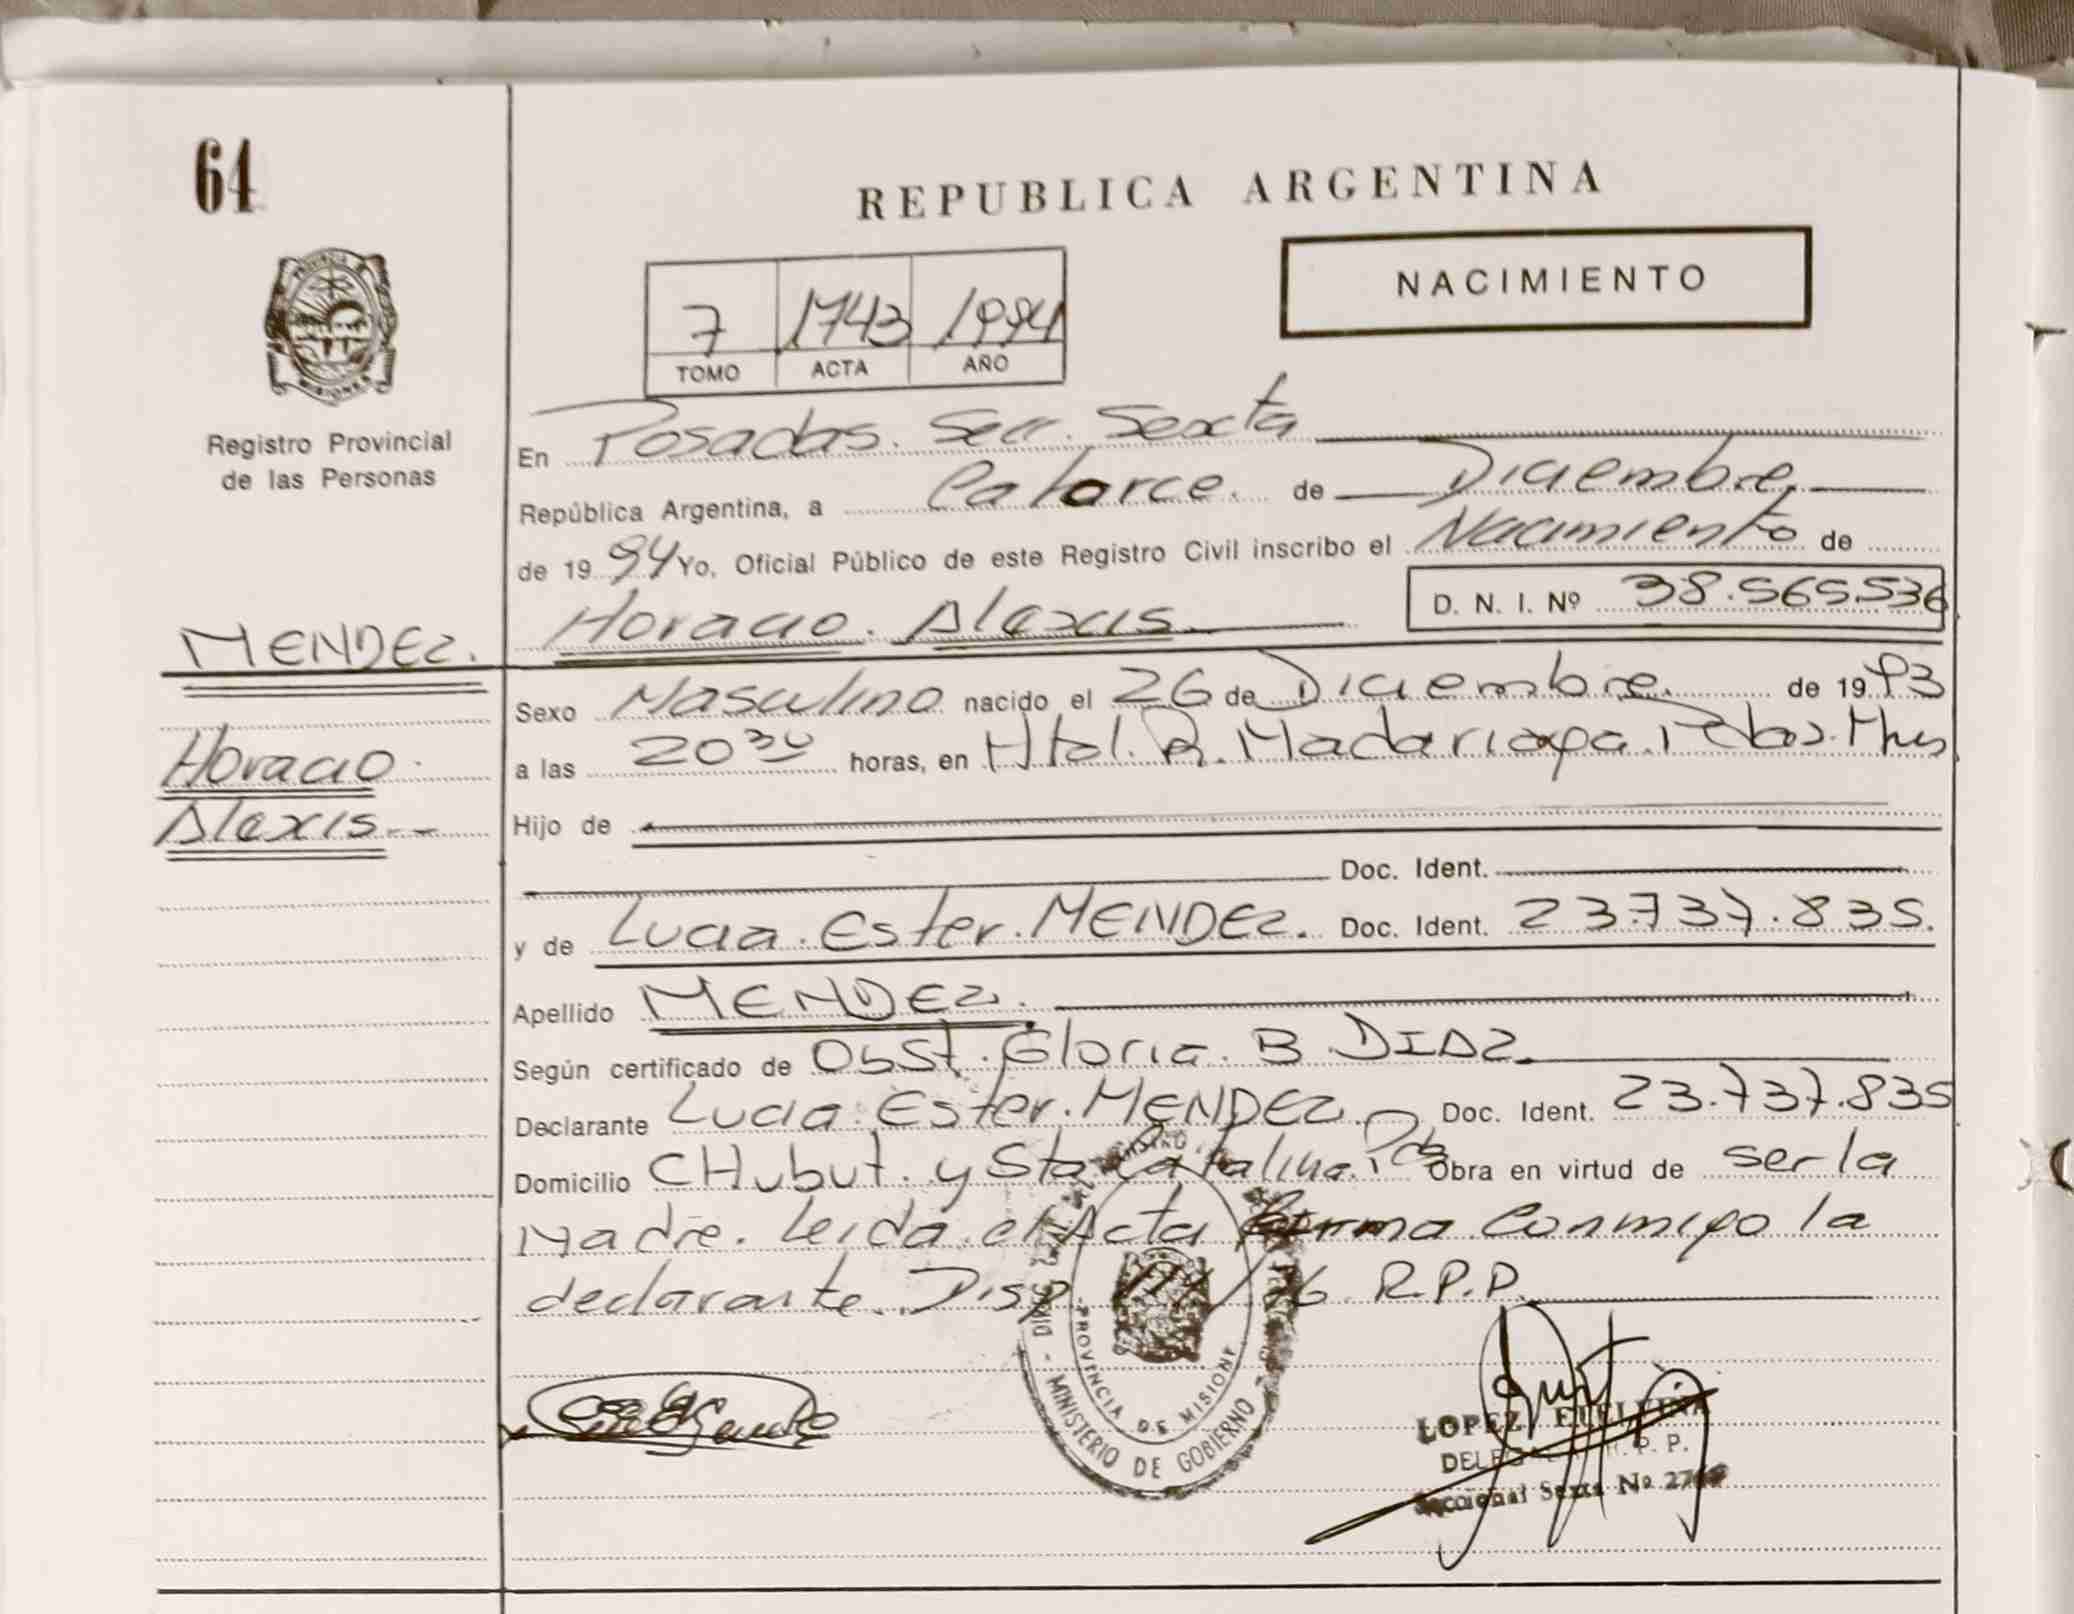 64
REPUBLICA ARGENTINA
NACIMIENTO
7 1743 1994
TOMO ACTA AÑO
Registro Provincial
de las Personas
En Posadas. Secc. Sexta
República Argentina, a Catorce. de Diciembre
de 1994 Yo, Oficial Público de este Registro Civil inscribo el Nacimiento de
Horacio. Alexis. D. N. I. Nº 38.565.536
MENDEZ.
Horacio.
Alexis.
Sexo Masculino nacido el 26 de Diciembre. de 1993
a las 20 30 horas, en Htal. R. Madariaga. Pdas. Mnes
Hijo de
Doc. Ident.
y de Lucia. Ester. MENDEZ. Doc. Ident. 23.737.835.
Apellido MENDEZ.
Según certificado de Obst. Gloria. B. DIAZ.
Declarante Lucia. Ester. MENDEZ. Doc. Ident. 23.737.835
Domicilio CHubut. y Sta Catalina. Pdas Obra en virtud de ser la
Madre. Leida el Acta firma Conmigo la
declarante. Disp. /76. R.P.P.
PROVINCIA DE MISIONES
MINISTERIO DE GOBIERNO
LOPEZ ETELVINA
R. P. P.
Seccional Sexta Nº